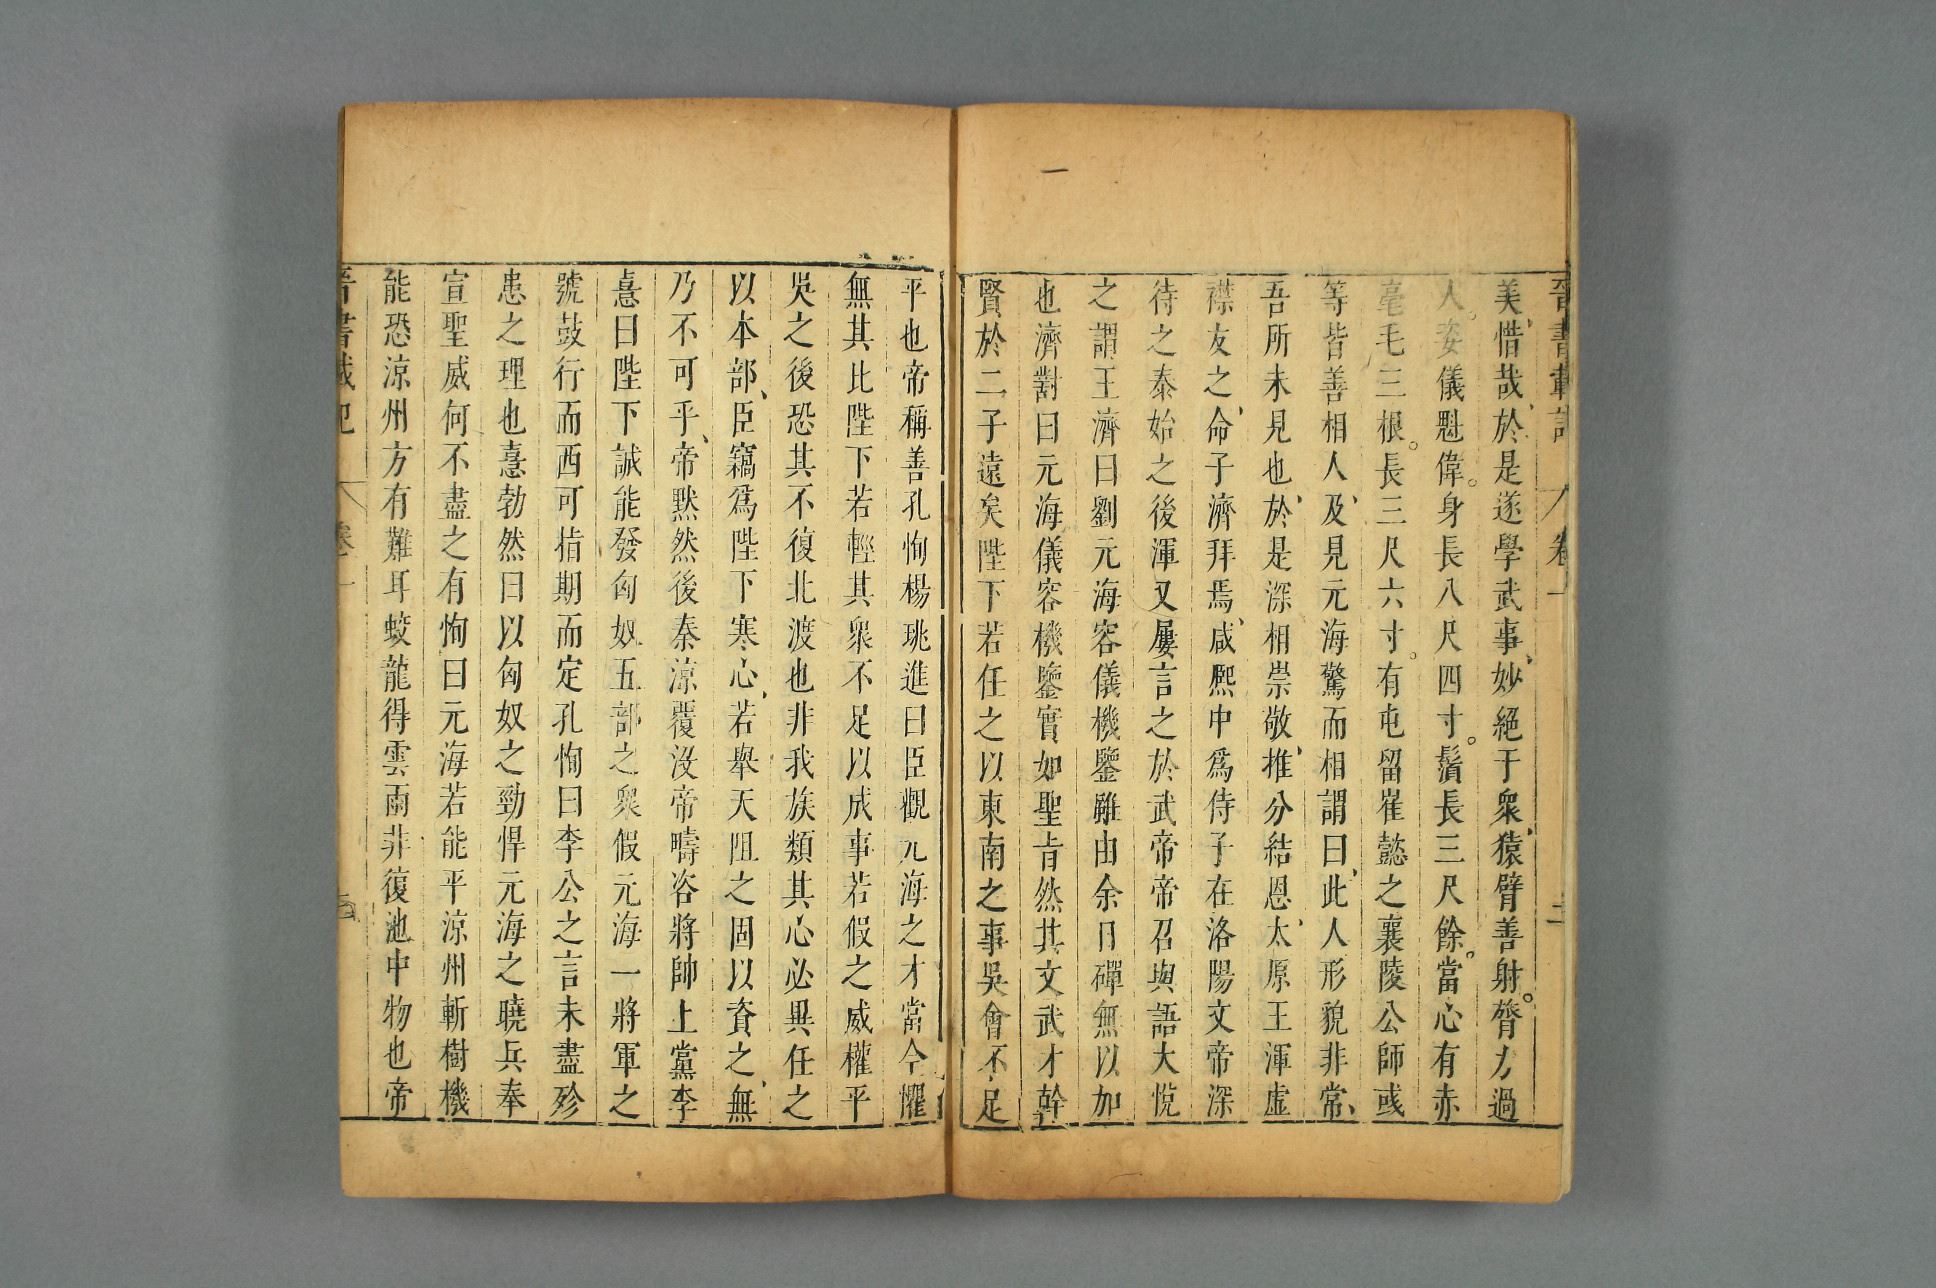 晉書載記 卷一 二
美惜哉於是遂學武事妙絕于衆猿臂善射膂力過
人姿儀魁偉身長八尺四寸鬚長三尺餘當心有赤
毫毛三根長三尺六寸有屯留崔懿之襄陵公師彧
等皆善相人及見元海驚而相謂曰此人形貌非常
吾所未見也於是深相崇敬推分結恩太原王渾虛
襟友之命子濟拜焉咸熙中爲侍子在洛陽文帝深
待之泰始之後渾又屢言之於武帝帝召與語大悅
之謂王濟曰劉元海容儀機鑒雖由余日磾無以加
也濟對曰元海儀容機鑒實如聖旨然其文武才幹
賢於二子遠矣陛下若任之以東南之事吳會不足
平也帝稱善孔恂楊珧進曰臣觀元海之才當今懼
無其比陛下若輕其衆不足以成事若假之威權平
吳之後恐其不復北渡也非我族類其心必異任之
以本部臣竊爲陛下寒心若舉天阻之固以資之無
乃不可乎帝默然後秦涼覆沒帝疇咨將帥上黨李
憙曰陛下誠能發匈奴五部之衆假元海一將軍之
號鼓行而西可指期而定孔恂曰李公之言未盡殄
患之理也憙勃然曰以匈奴之勁悍元海之曉兵奉
宣聖威何不盡之有恂曰元海若能平涼州斬樹機
能恐涼州方有難耳蛟龍得雲雨非復池中物也帝
晉書載記 卷一